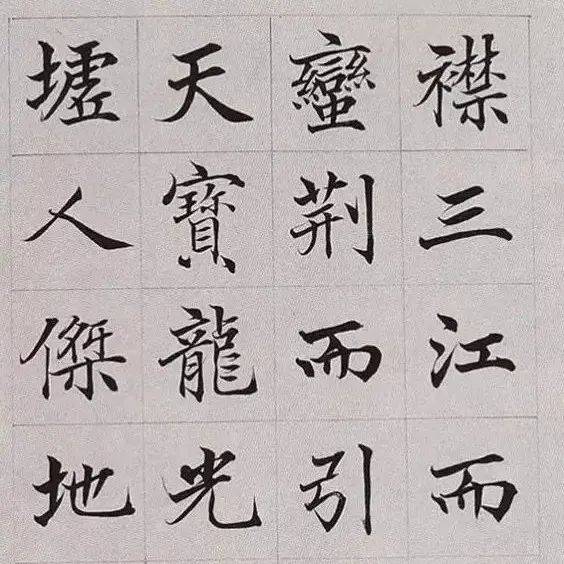 襟三江而
蠻荆而引
天寶龍光
墟人傑地